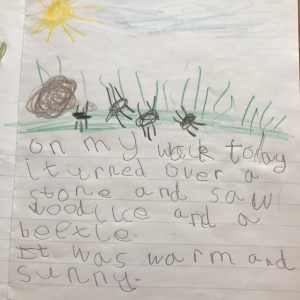 on my walk today
i turned over a
stone and saw
woodlice and a
beetle.
It was warm and
sunny.